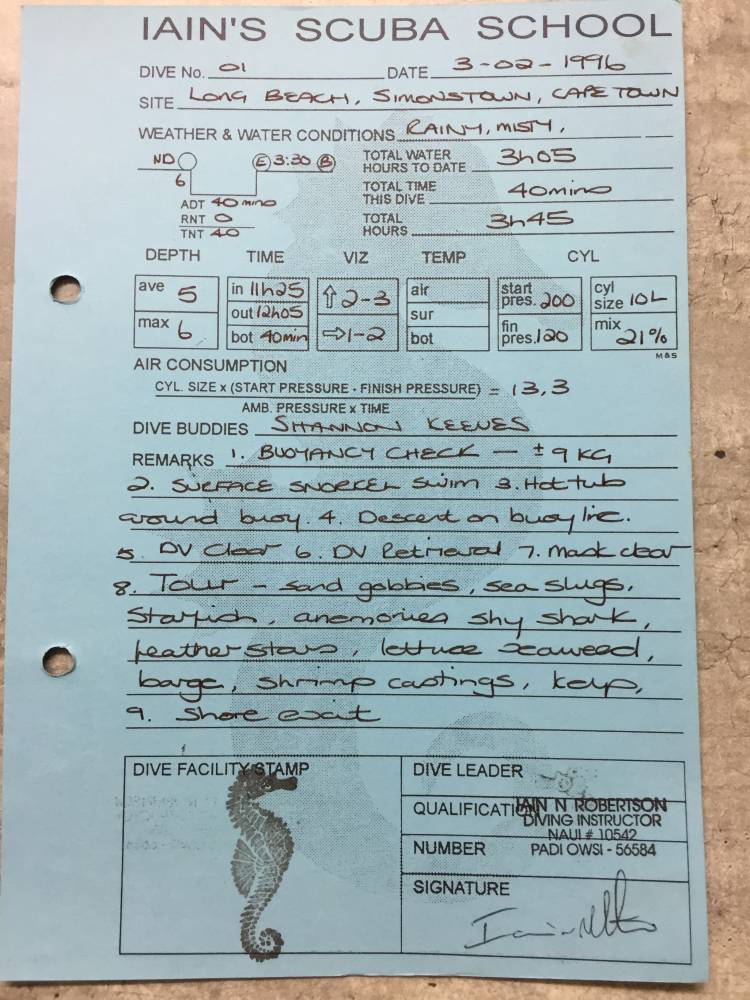 IAIN'S SCUBA SCHOOL
DIVE No. 01 DATE 3-02-1996
SITE LONG BEACH, SIMONSTOWN, CAPE TOWN
WEATHER & WATER CONDITIONS RAINY, MISTY,
ND E 3:30 B TOTAL WATER HOURS TO DATE 3h05
6
ADT 40 mins TOTAL TIME THIS DIVE 40mins
RNT 0 TOTAL HOURS 3h45
TNT 40
DEPTH TIME VIZ TEMP CYL
ave 5 in 11h25 ⇧2-3 air start pres. 200 cyl size 10L
out 12h05 sur
max 6 bot 40min ⇨1-2 bot fin pres. 120 mix 21%
M&S
AIR CONSUMPTION
CYL. SIZE x (START PRESSURE - FINISH PRESSURE) = 13,3
AMB. PRESSURE x TIME
DIVE BUDDIES SHANNON KEEVES
REMARKS 1. BUOYANCY CHECK - ± 9 KG
2. SURFACE SNORKEL SWIM 3. Hot tub
around buoy. 4. Descent on buoy line.
5. DV Clear 6. DV Retrieval 7. Mask clear
8. Tour - sand gobbies, sea slugs,
Starfish, anemonies shy shark,
feather stars, lettuce seaweed,
barge, shrimp castings, kelp,
9. Shore exit
DIVE FACILITY STAMP
DIVE LEADER
QUALIFICATION IAIN N ROBERTSON
DIVING INSTRUCTOR
NAUI # 10542
NUMBER PADI OWSI - 56584
SIGNATURE